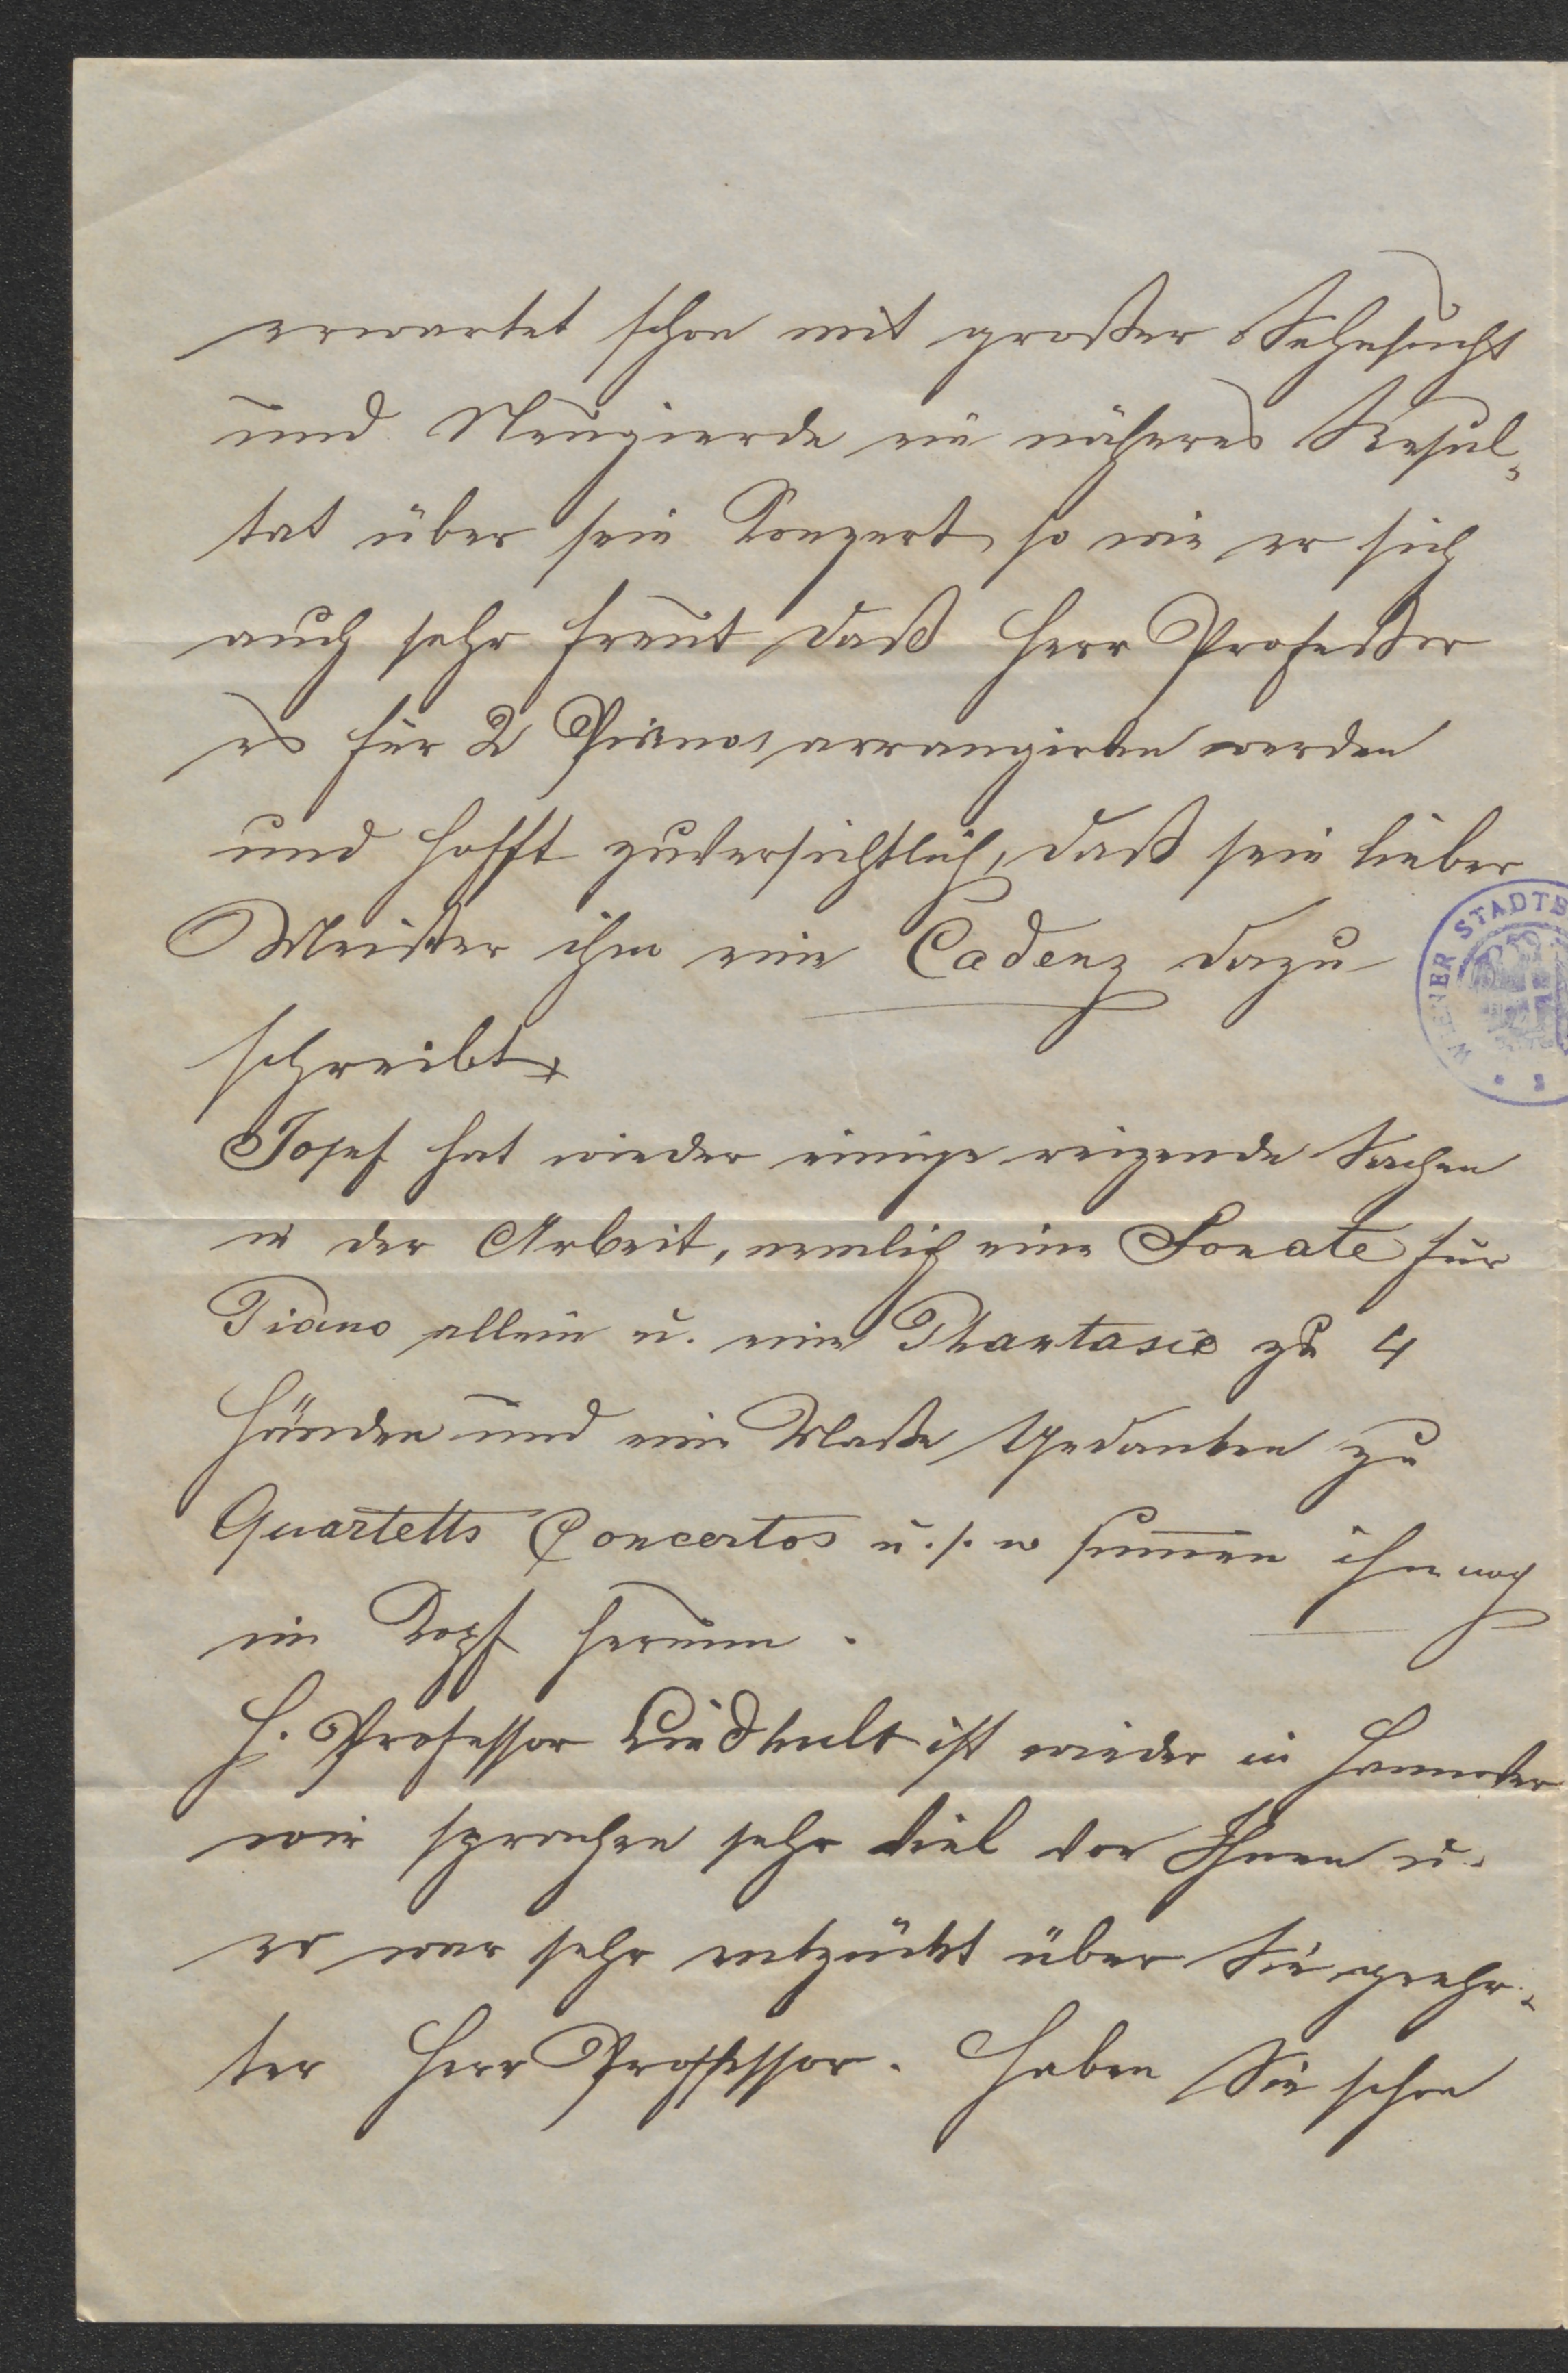 erwartet schon mit großer Sehnsucht
und Neugierde ein näheres Resul-
tat über sein Konzert, so wie er sich
auch sehr freut daß Herr Professor
es für 2 Pianos arrangiren werden
und hofft zuversichtlich, daß sein lieber
Meister ihm eine Cadenz dazu
schreibt.
Josef hat wieder einige reizende Sachen
in der Arbeit, nemlich eine Sonate für
Piano allein u. eine Phantasie zu 4
Händen und eine Masse Gedanken zu
Quartetts Concertos u. s. w summen ihm noch
im Kopf herum.
H. Professor ist wieder in Hannover
wir sprachen sehr viel von Ihnen u.
er war sehr entzückt über Sie geehr-
ter Herr Proffessor. Haben Sie schon
WIENER STADTB